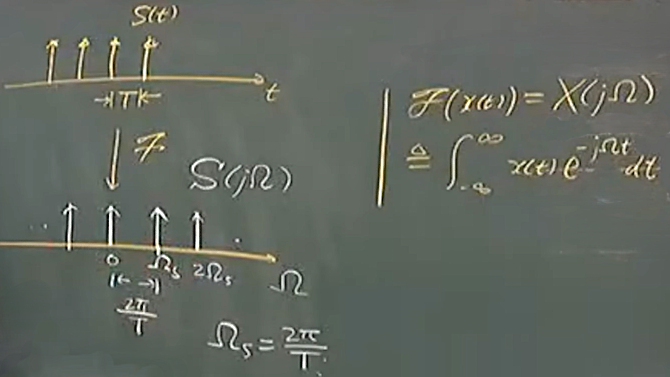 S(t)
→|T|← t
ℱ
S(jΩ)
.. 0 Ωs 2Ωs . Ω
|← →|
2π/T
Ωs = 2π/T
ℱ(x(t)) = X(jΩ)
≜ ∫_{-∞}^{∞} x(t) e^{-jΩt} dt